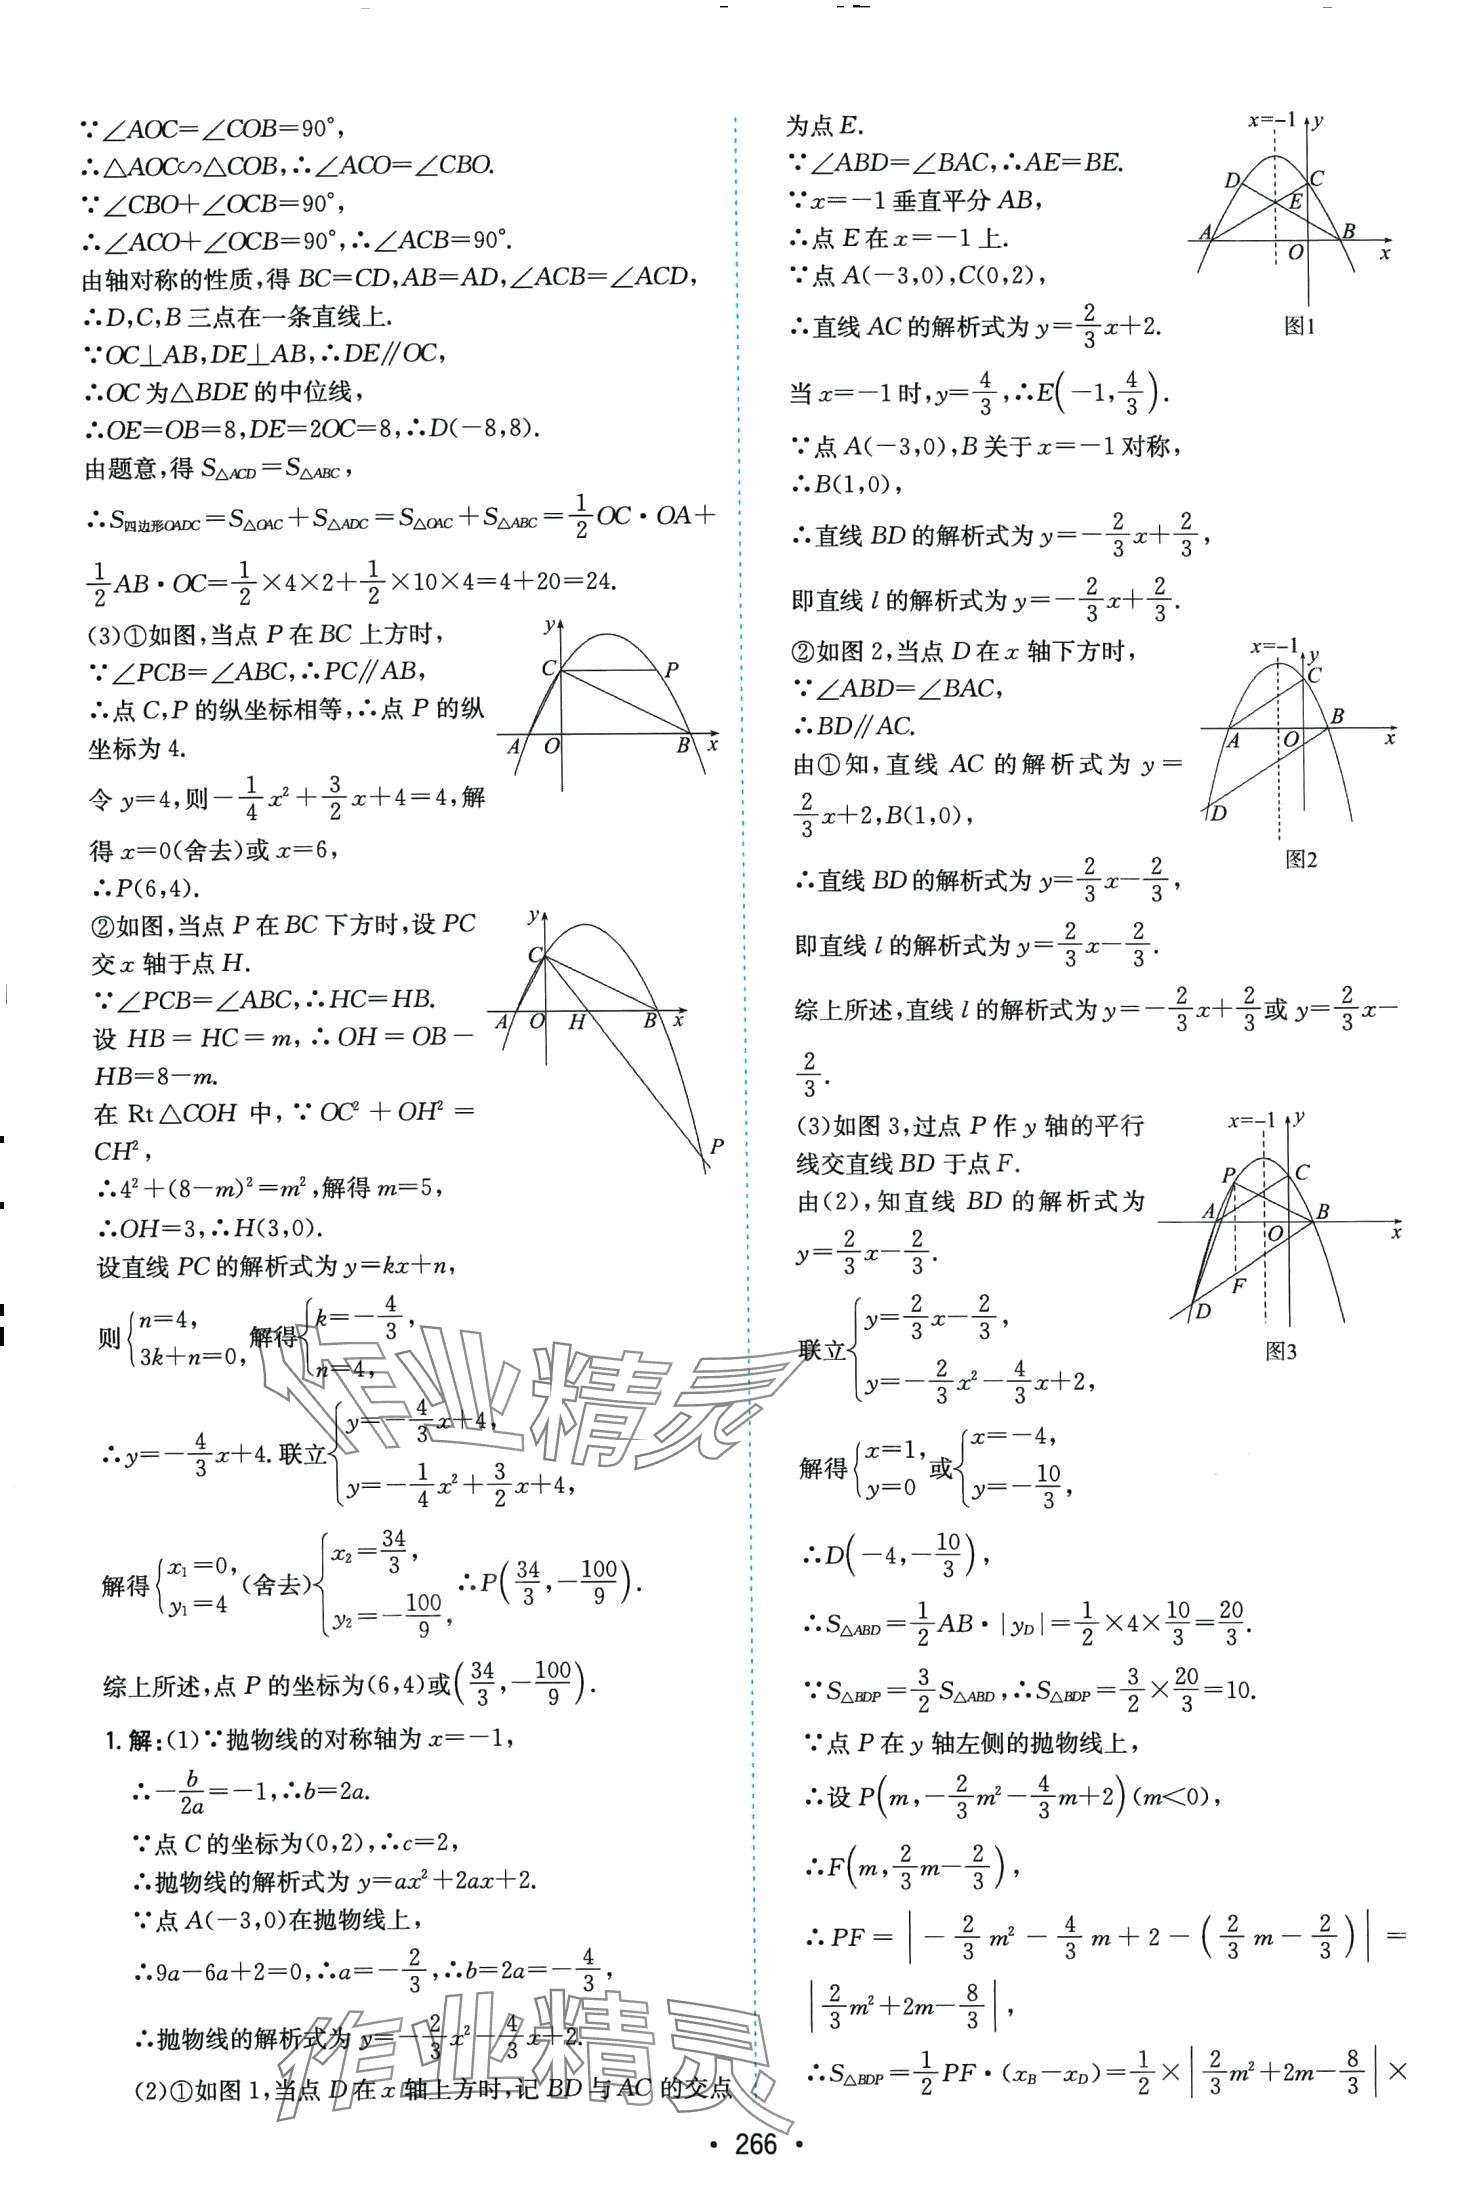 ∵∠AOC=∠COB=90°,
∴△AOC∽△COB,∴∠ACO=∠CBO.
∵∠CBO+∠OCB=90°,
∴∠ACO+∠OCB=90°,∴∠ACB=90°.
由轴对称的性质,得 BC=CD,AB=AD,∠ACB=∠ACD,
∴D,C,B 三点在一条直线上.
∵OC⊥AB,DE⊥AB,∴DE∥OC,
∴OC 为△BDE 的中位线,
∴OE=OB=8,DE=2OC=8,∴D(-8,8).
由题意,得 S△ACD=S△ABC,
∴S四边形OADC=S△OAC+S△ADC=S△OAC+S△ABC=1/2 OC·OA+
1/2 AB·OC=1/2×4×2+1/2×10×4=4+20=24.
(3)①如图,当点 P 在 BC 上方时,
∵∠PCB=∠ABC,∴PC∥AB,
∴点 C,P 的纵坐标相等,∴点 P 的纵
坐标为 4.
令 y=4,则-1/4 x²+3/2 x+4=4,解
得 x=0(舍去)或 x=6,
∴P(6,4).
y
C
P
A
O
B
x
②如图,当点 P 在 BC 下方时,设 PC
交 x 轴于点 H.
∵∠PCB=∠ABC,∴HC=HB.
设 HB=HC=m,∴OH=OB-
HB=8-m.
在 Rt△COH 中,∵OC²+OH²=
CH²,
∴4²+(8-m)²=m²,解得 m=5,
∴OH=3,∴H(3,0).
y
C
A
O
H
B
x
P
设直线 PC 的解析式为 y=kx+n,
则{n=4, 3k+n=0, 解得{k=-4/3, n=4,
∴y=-4/3 x+4. 联立{y=-4/3 x+4, y=-1/4 x²+3/2 x+4,
解得{x₁=0, y₁=4 (舍去){x₂=34/3, y₂=-100/9, ∴P(34/3,-100/9).
综上所述,点 P 的坐标为(6,4)或(34/3,-100/9).
1. 解:(1)∵抛物线的对称轴为 x=-1,
∴-b/2a=-1,∴b=2a.
∵点 C 的坐标为(0,2),∴c=2,
∴抛物线的解析式为 y=ax²+2ax+2.
∵点 A(-3,0)在抛物线上,
∴9a-6a+2=0,∴a=-2/3,∴b=2a=-4/3,
∴抛物线的解析式为 y=-2/3 x²-4/3 x+2.
(2)①如图 1,当点 D 在 x 轴上方时,记 BD 与 AC 的交点
为点 E.
∵∠ABD=∠BAC,∴AE=BE.
∵x=-1 垂直平分 AB,
∴点 E 在 x=-1 上.
∵点 A(-3,0),C(0,2),
∴直线 AC 的解析式为 y=2/3 x+2.
x=-1
y
D
C
E
A
B
O
x
图1
当 x=-1 时,y=4/3,∴E(-1,4/3).
∵点 A(-3,0),B 关于 x=-1 对称,
∴B(1,0),
∴直线 BD 的解析式为 y=-2/3 x+2/3,
即直线 l 的解析式为 y=-2/3 x+2/3.
②如图 2,当点 D 在 x 轴下方时,
∵∠ABD=∠BAC,
∴BD∥AC.
由①知,直线 AC 的解析式为 y=
2/3 x+2,B(1,0),
∴直线 BD 的解析式为 y=2/3 x-2/3,
x=-1
y
C
B
A
O
x
D
图2
即直线 l 的解析式为 y=2/3 x-2/3.
综上所述,直线 l 的解析式为 y=-2/3 x+2/3 或 y=2/3 x-
2/3.
(3)如图 3,过点 P 作 y 轴的平行
线交直线 BD 于点 F.
由(2),知直线 BD 的解析式为
y=2/3 x-2/3.
联立{y=2/3 x-2/3, y=-2/3 x²-4/3 x+2,
x=-1
y
P
C
A
B
O
x
F
D
图3
解得{x=1, y=0 或{x=-4, y=-10/3,
∴D(-4,-10/3),
∴S△ABD=1/2 AB·|yD|=1/2×4×10/3=20/3.
∵S△BDP=3/2 S△ABD,∴S△BDP=3/2×20/3=10.
∵点 P 在 y 轴左侧的抛物线上,
∴设 P(m,-2/3 m²-4/3 m+2)(m<0),
∴F(m,2/3 m-2/3),
∴PF=|-2/3 m²-4/3 m+2-(2/3 m-2/3)|=
|2/3 m²+2m-8/3|,
∴S△BDP=1/2 PF·(xB-xD)=1/2×|2/3 m²+2m-8/3|×
作业精灵
作业精灵
· 266 ·